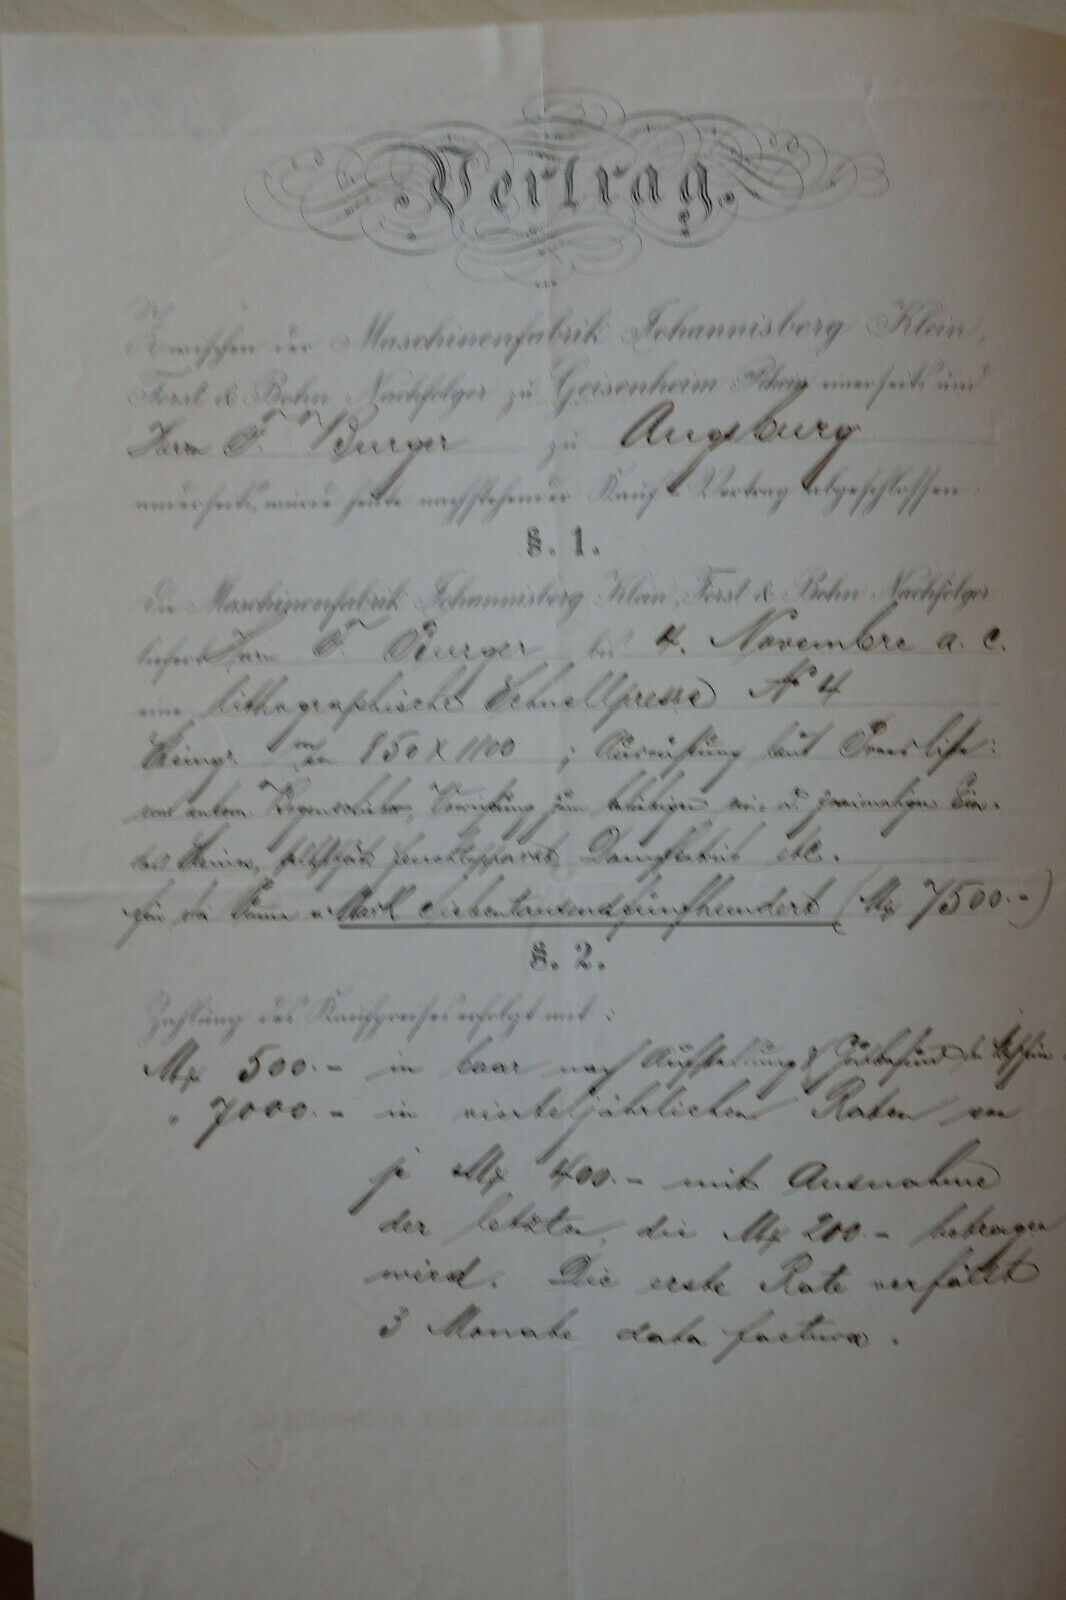 Vertrag.
Zwischen der Maschinenfabrik Johannisberg Klein,
Forst & Bohn Nachfolger zu Geisenheim einerseits und
Herrn F. Burger zu Augsburg
anderseits, wurde heute nachstehender Kauf-Vertrag abgeschlossen:
§. 1.
Die Maschinenfabrik Johannisberg Klein, Forst & Bohn Nachfolger
liefert Herrn F. Burger bis 4. Novembre a. c.
eine lithographische Schnellpresse No 4
Steingr. mm 850 x 1100 ; Ausrüstung laut Preisliste:
Vorrichtung zum
Steine, Dampfbetrieb etc.
für die Summe v. Mark Siebentausendfünfhundert (Mk 7500.-)
§. 2.
Zahlung des Kaufpreises erfolgt mit:
Mk 500.- in baar nach Aufstellung & Gutbefund der Maschine
" 7000.- in vierteljährlichen Raten von
je Mk 400.- mit Ausnahme
der letzten, die Mk 200.- betragen
wird. Die erste Rate verfällt
3 Monate dato factura.